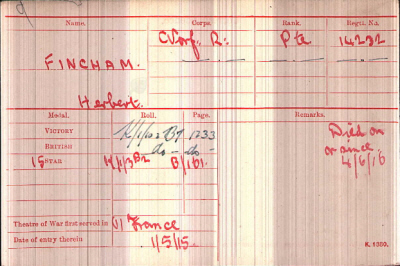 Name. Corps. Rank. Regtl. No.
FINCHAM. Norf. R: Pte 14232
Herbert.
Medal. Roll. Page. Remarks.
VICTORY K/1/102 B7 1233 Died on
BRITISH do - do - or since
15 STAR K/1/3 B2 B/161. 4/6/16
Theatre of War first served in (1) France
Date of entry therein 1/5/15.
K. 1380.